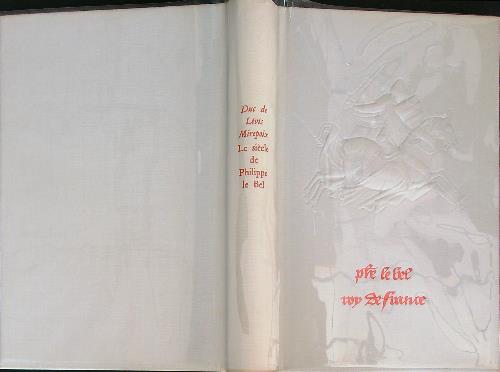 Duc de
Lévis
Mirepoix
Le siècle
de
Philippe
le Bel
phe le bel
roy de france